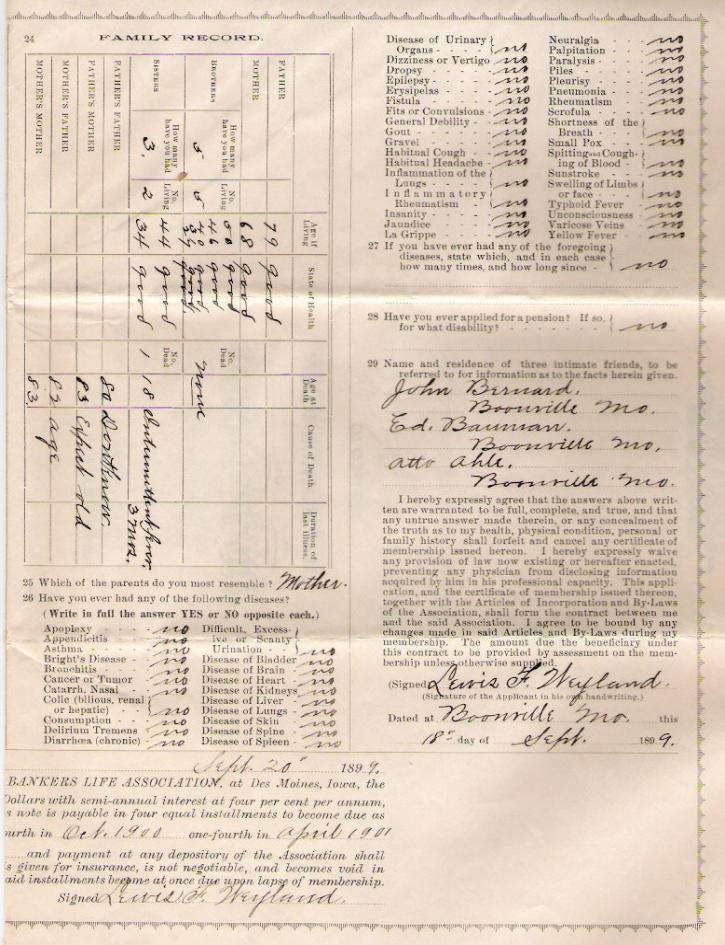 24
FAMILY RECORD.
FATHER
MOTHER
BROTHERS
SISTERS
FATHER'S FATHER
FATHER'S MOTHER
MOTHER'S FATHER
MOTHER'S MOTHER
How many have you had
5
How many have you had
3,
No. Living
5
No. Living
2
Age if Living
79
68
50
46
40
39
44
34
State of Health
good
good
good
good
good
good
good
good
No. Dead
None
No. Dead
1
Age at Death
18
80
83
82
83
Cause of Death
Dont know
Expect old
age
Duration of last Illness.
3 mos.
25 Which of the parents do you most resemble? Mother.
26 Have you ever had any of the following diseases?
(Write in full the answer YES or NO opposite each.)
Apoplexy - - - no
Appendicitis - - no
Asthma - - - no
Bright's Disease - no
Bronchitis - - no
Cancer or Tumor no
Catarrh, Nasal - no
Colic (bilious, renal
or hepatic) - - no
Consumption - - no
Delirium Tremens no
Diarrhœa (chronic) no
Difficult, Excess-
ive or Scanty
Urination - - no
Disease of Bladder no
Disease of Brain - no
Disease of Heart - no
Disease of Kidneys no
Disease of Liver - no
Disease of Lungs - no
Disease of Skin no
Disease of Spine - no
Disease of Spleen - no
Disease of Urinary
Organs - - - - no
Dizziness or Vertigo no
Dropsy - - - - no
Epilepsy - - - - no
Erysipelas - - - no
Fistula - - - - no
Fits or Convulsions - no
General Debility - - no
Gout - - - - - no
Gravel - - - - no
Habitual Cough - - no
Habitual Headache - no
Inflammation of the
Lungs - - - - no
Inflammatory
Rheumatism - - no
Insanity - - - - no
Jaundice - - - no
La Grippe - - - no
Neuralgia - - - no
Palpitation - - - no
Paralysis - - - no
Piles - - - - no
Pleurisy - - - no
Pneumonia - - - no
Rheumatism - - no
Scrofula - - - - no
Shortness of the
Breath - - - no
Small Pox - - - no
Spitting and Cough-
ing of Blood - - no
Sunstroke - - - no
Swelling of Limbs
or face - - - - no
Typhoid Fever - - no
Unconsciousness - no
Varicose Veins - - no
Yellow Fever - - - no
27 If you have ever had any of the foregoing
diseases, state which, and in each case
how many times, and how long since - no
28 Have you ever applied for a pension? If so,
for what disability? - - - - - - no
29 Name and residence of three intimate friends, to be
referred to for information as to the facts herein given.
John Bernard.
Boonville Mo.
Ed. Bauman.
Boonville Mo,
Atto Ahle.
Boonville Mo.
I hereby expressly agree that the answers above writ-
ten are warranted to be full, complete, and true, and that
any untrue answer made therein, or any concealment of
the truth as to my health, physical condition, personal or
family history shall forfeit and cancel any certificate of
membership issued hereon. I hereby expressly waive
any provision of law now existing or hereafter enacted,
preventing any physician from disclosing information
acquired by him in his professional capacity. This appli-
cation, and the certificate of membership issued thereon,
together with the Articles of Incorporation and By-Laws
of the Association, shall form the contract between me
and the said Association. I agree to be bound by any
changes made in said Articles and By-Laws during my
membership. The amount due the beneficiary under
this contract to be provided by assessment on the mem-
bership unless otherwise supplied.
(Signed) Lewis F. Weyland.
(Signature of the Applicant in his own handwriting.)
Dated at Boonville Mo. this
18th day of Sept. 1899.
Sept. 20" 1899.
BANKERS LIFE ASSOCIATION, at Des Moines, Iowa, the
Dollars with semi-annual interest at four per cent per annum,
s note is payable in four equal installments to become due as
ourth in Oct. 1900 one-fourth in April 1901
and payment at any depository of the Association shall
s given for insurance, is not negotiable, and becomes void in
aid installments become at once due upon lapse of membership.
Signed Lewis F. Weyland.